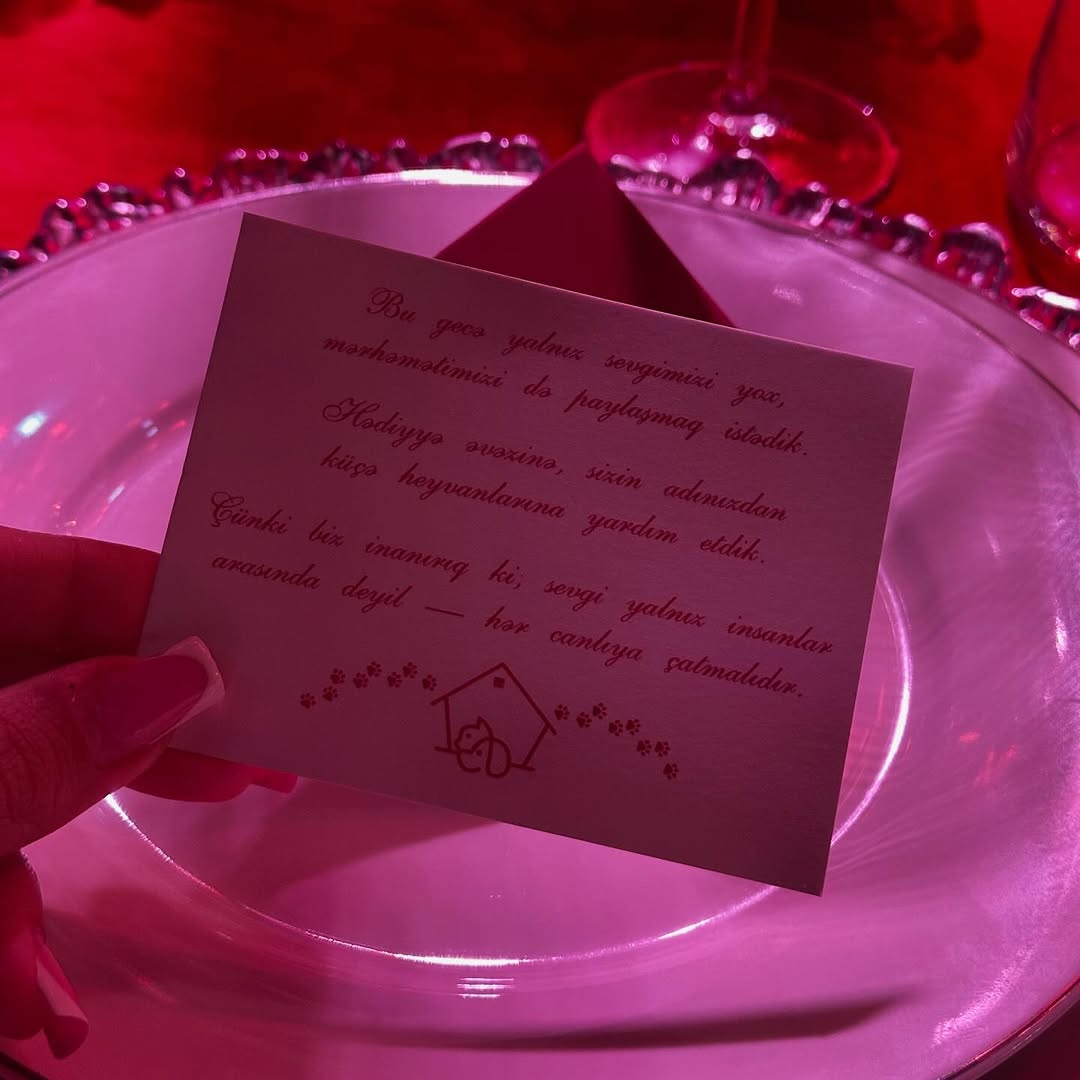 Bu gecə yalnız sevgimizi yox,
mərhəmətimizi də paylaşmaq istədik.
Hədiyyə əvəzinə, sizin adınızdan
küçə heyvanlarına yardım etdik.
Çünki biz inanırıq ki; sevgi yalnız insanlar
arasında deyil — hər canlıya çatmalıdır.